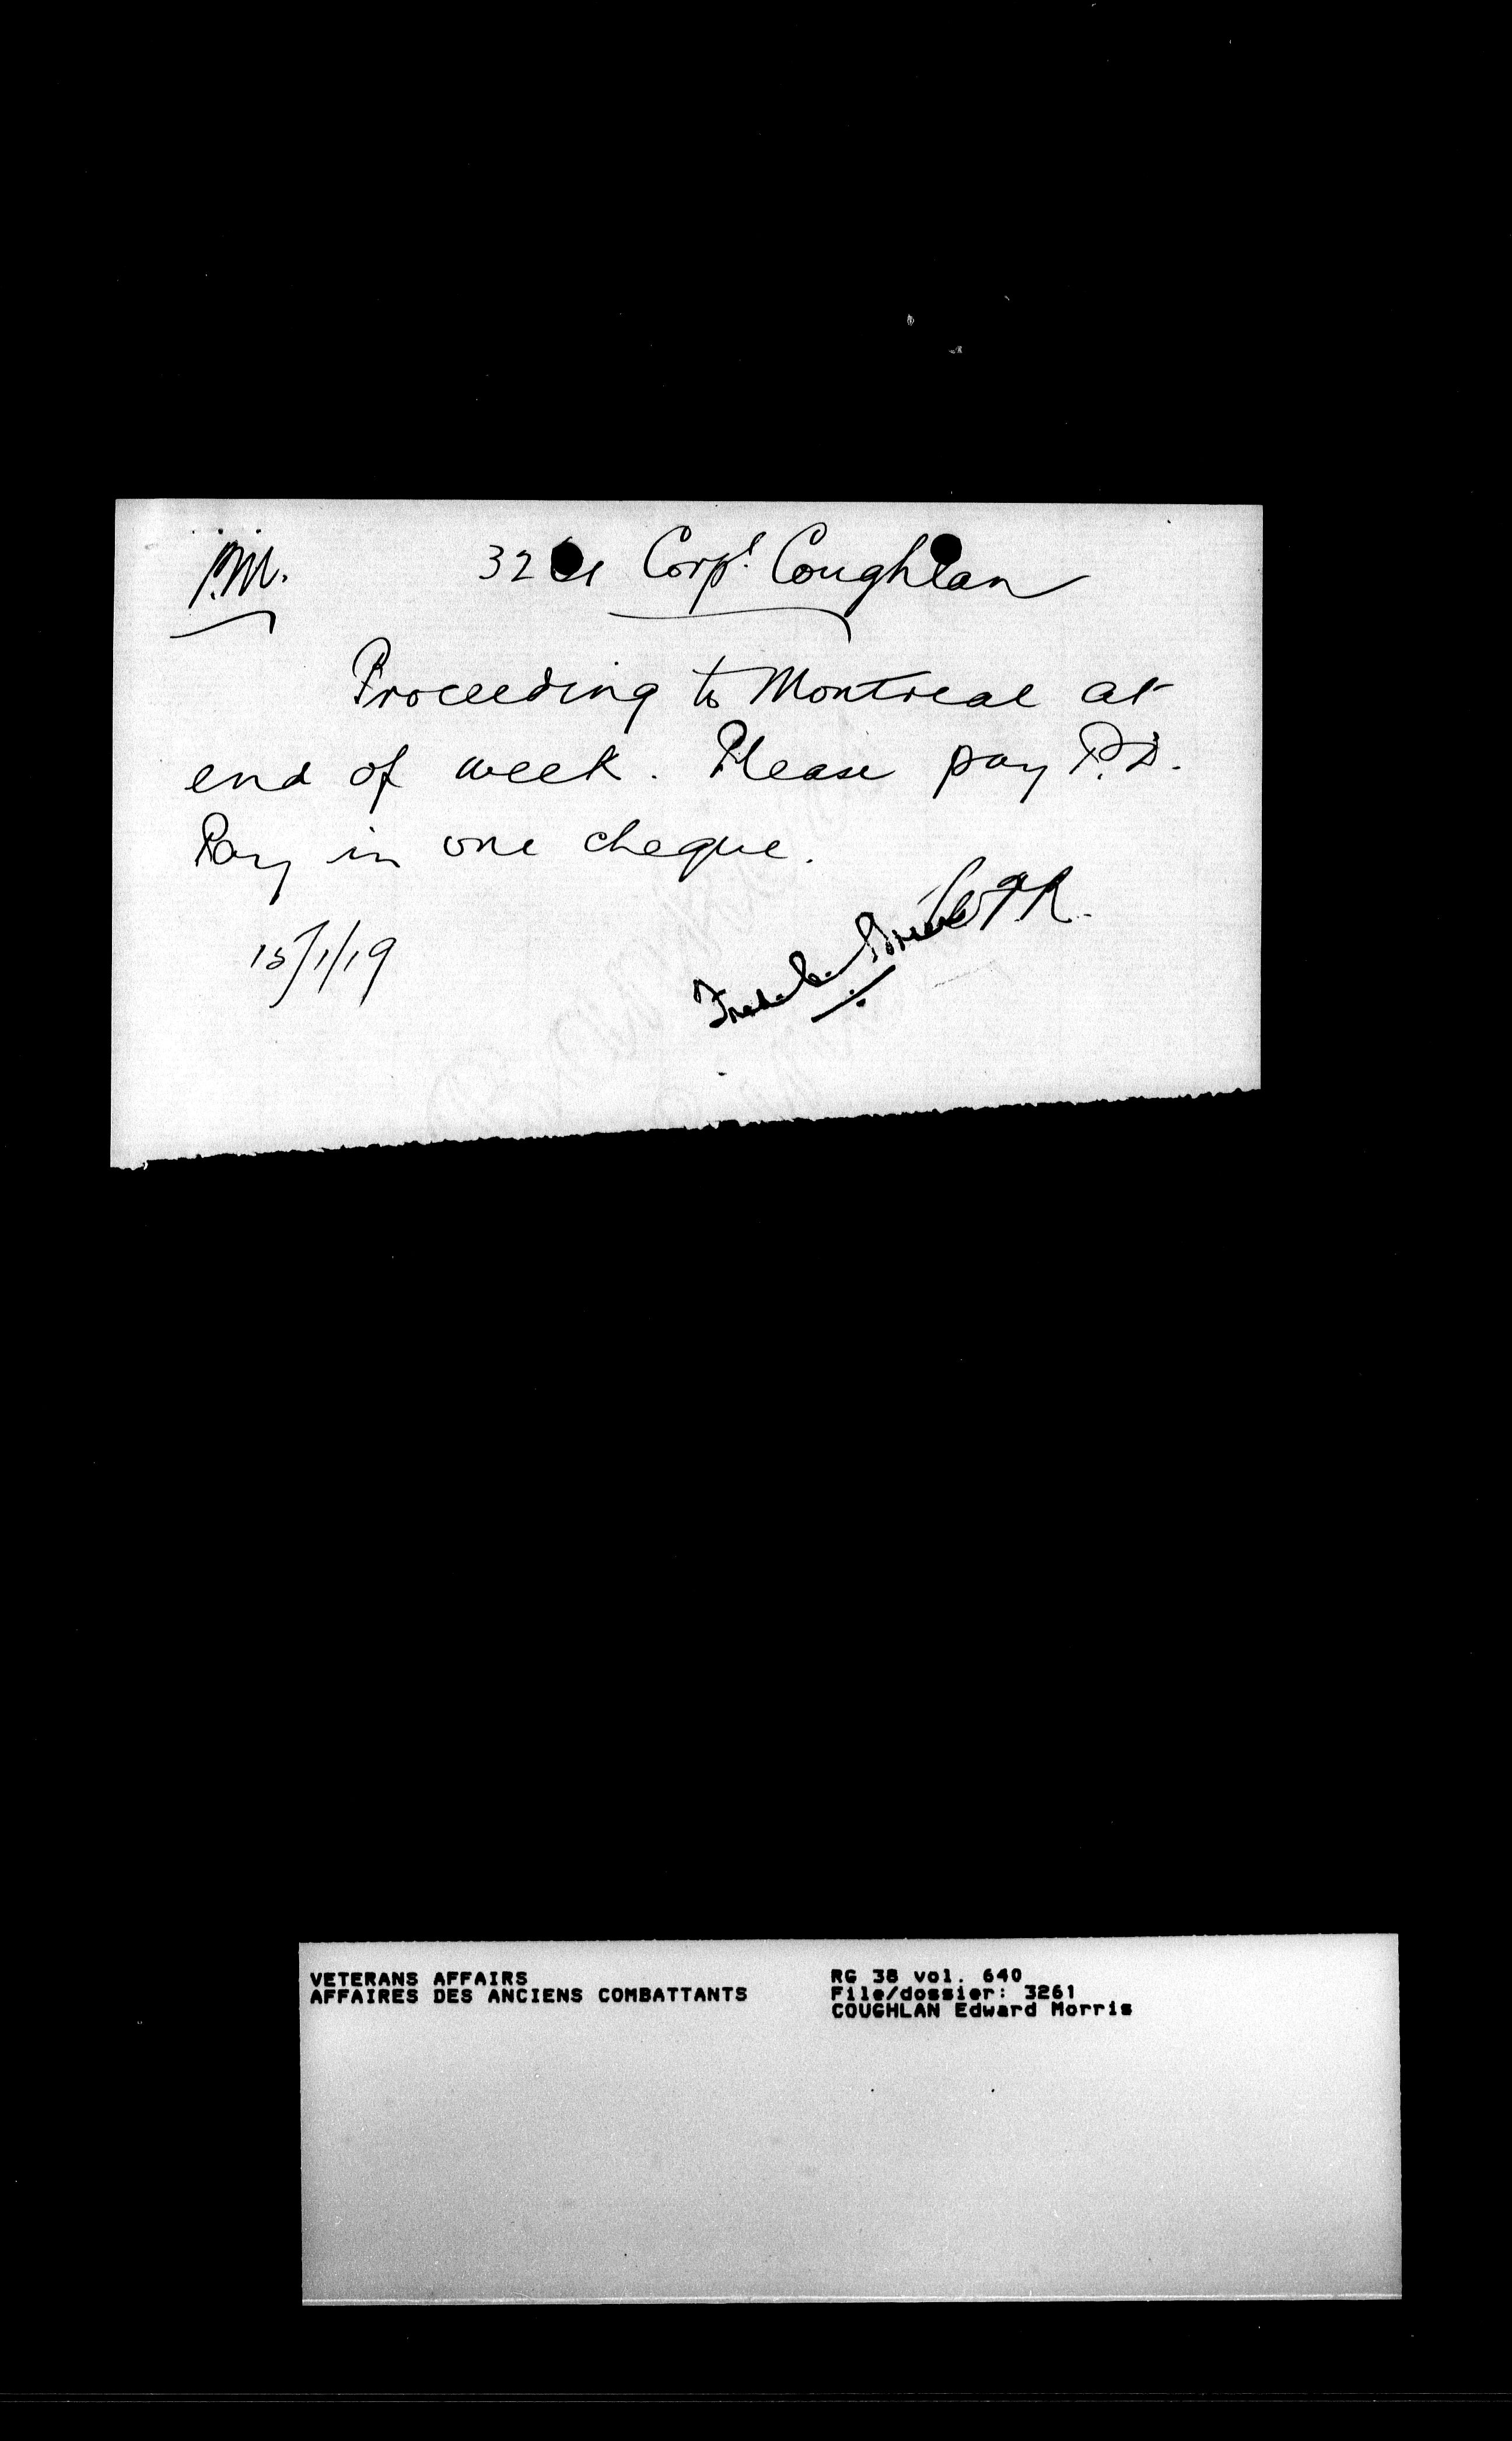 P.M. 3261 Corpl. Coughlan
Proceeding to Montreal at
end of week. Please pay P.D.
Pay in one cheque.
15/1/19
VETERANS AFFAIRS
AFFAIRES DES ANCIENS COMBATTANTS
RG 38 vol. 640
File/dossier: 3261
COUGHLAN Edward Morris